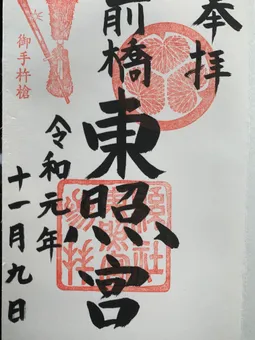 奉拝
前橋
東照宮
令和元年
十一月九日
御手杵槍